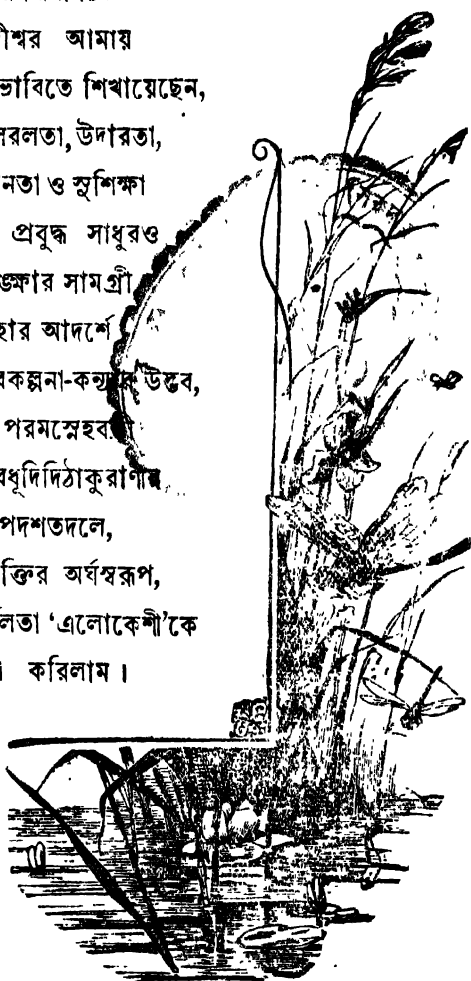 শ্বর আমায়
ভাবিতে শিখায়েছেন,
সরলতা, উদারতা,
নতা ও সুশিক্ষা
প্রবুদ্ধ সাধুরও
ঙ্ক্ষার সামগ্রী,
হার আদর্শে
কল্পনা-কন্যার উদ্ভব,
পরমস্নেহব
বধূদিদিঠাকুরাণীর
পদশতদলে,
ক্তির অর্ঘস্বরূপ,
লতা ‘এলোকেশী’কে
করিলাম।